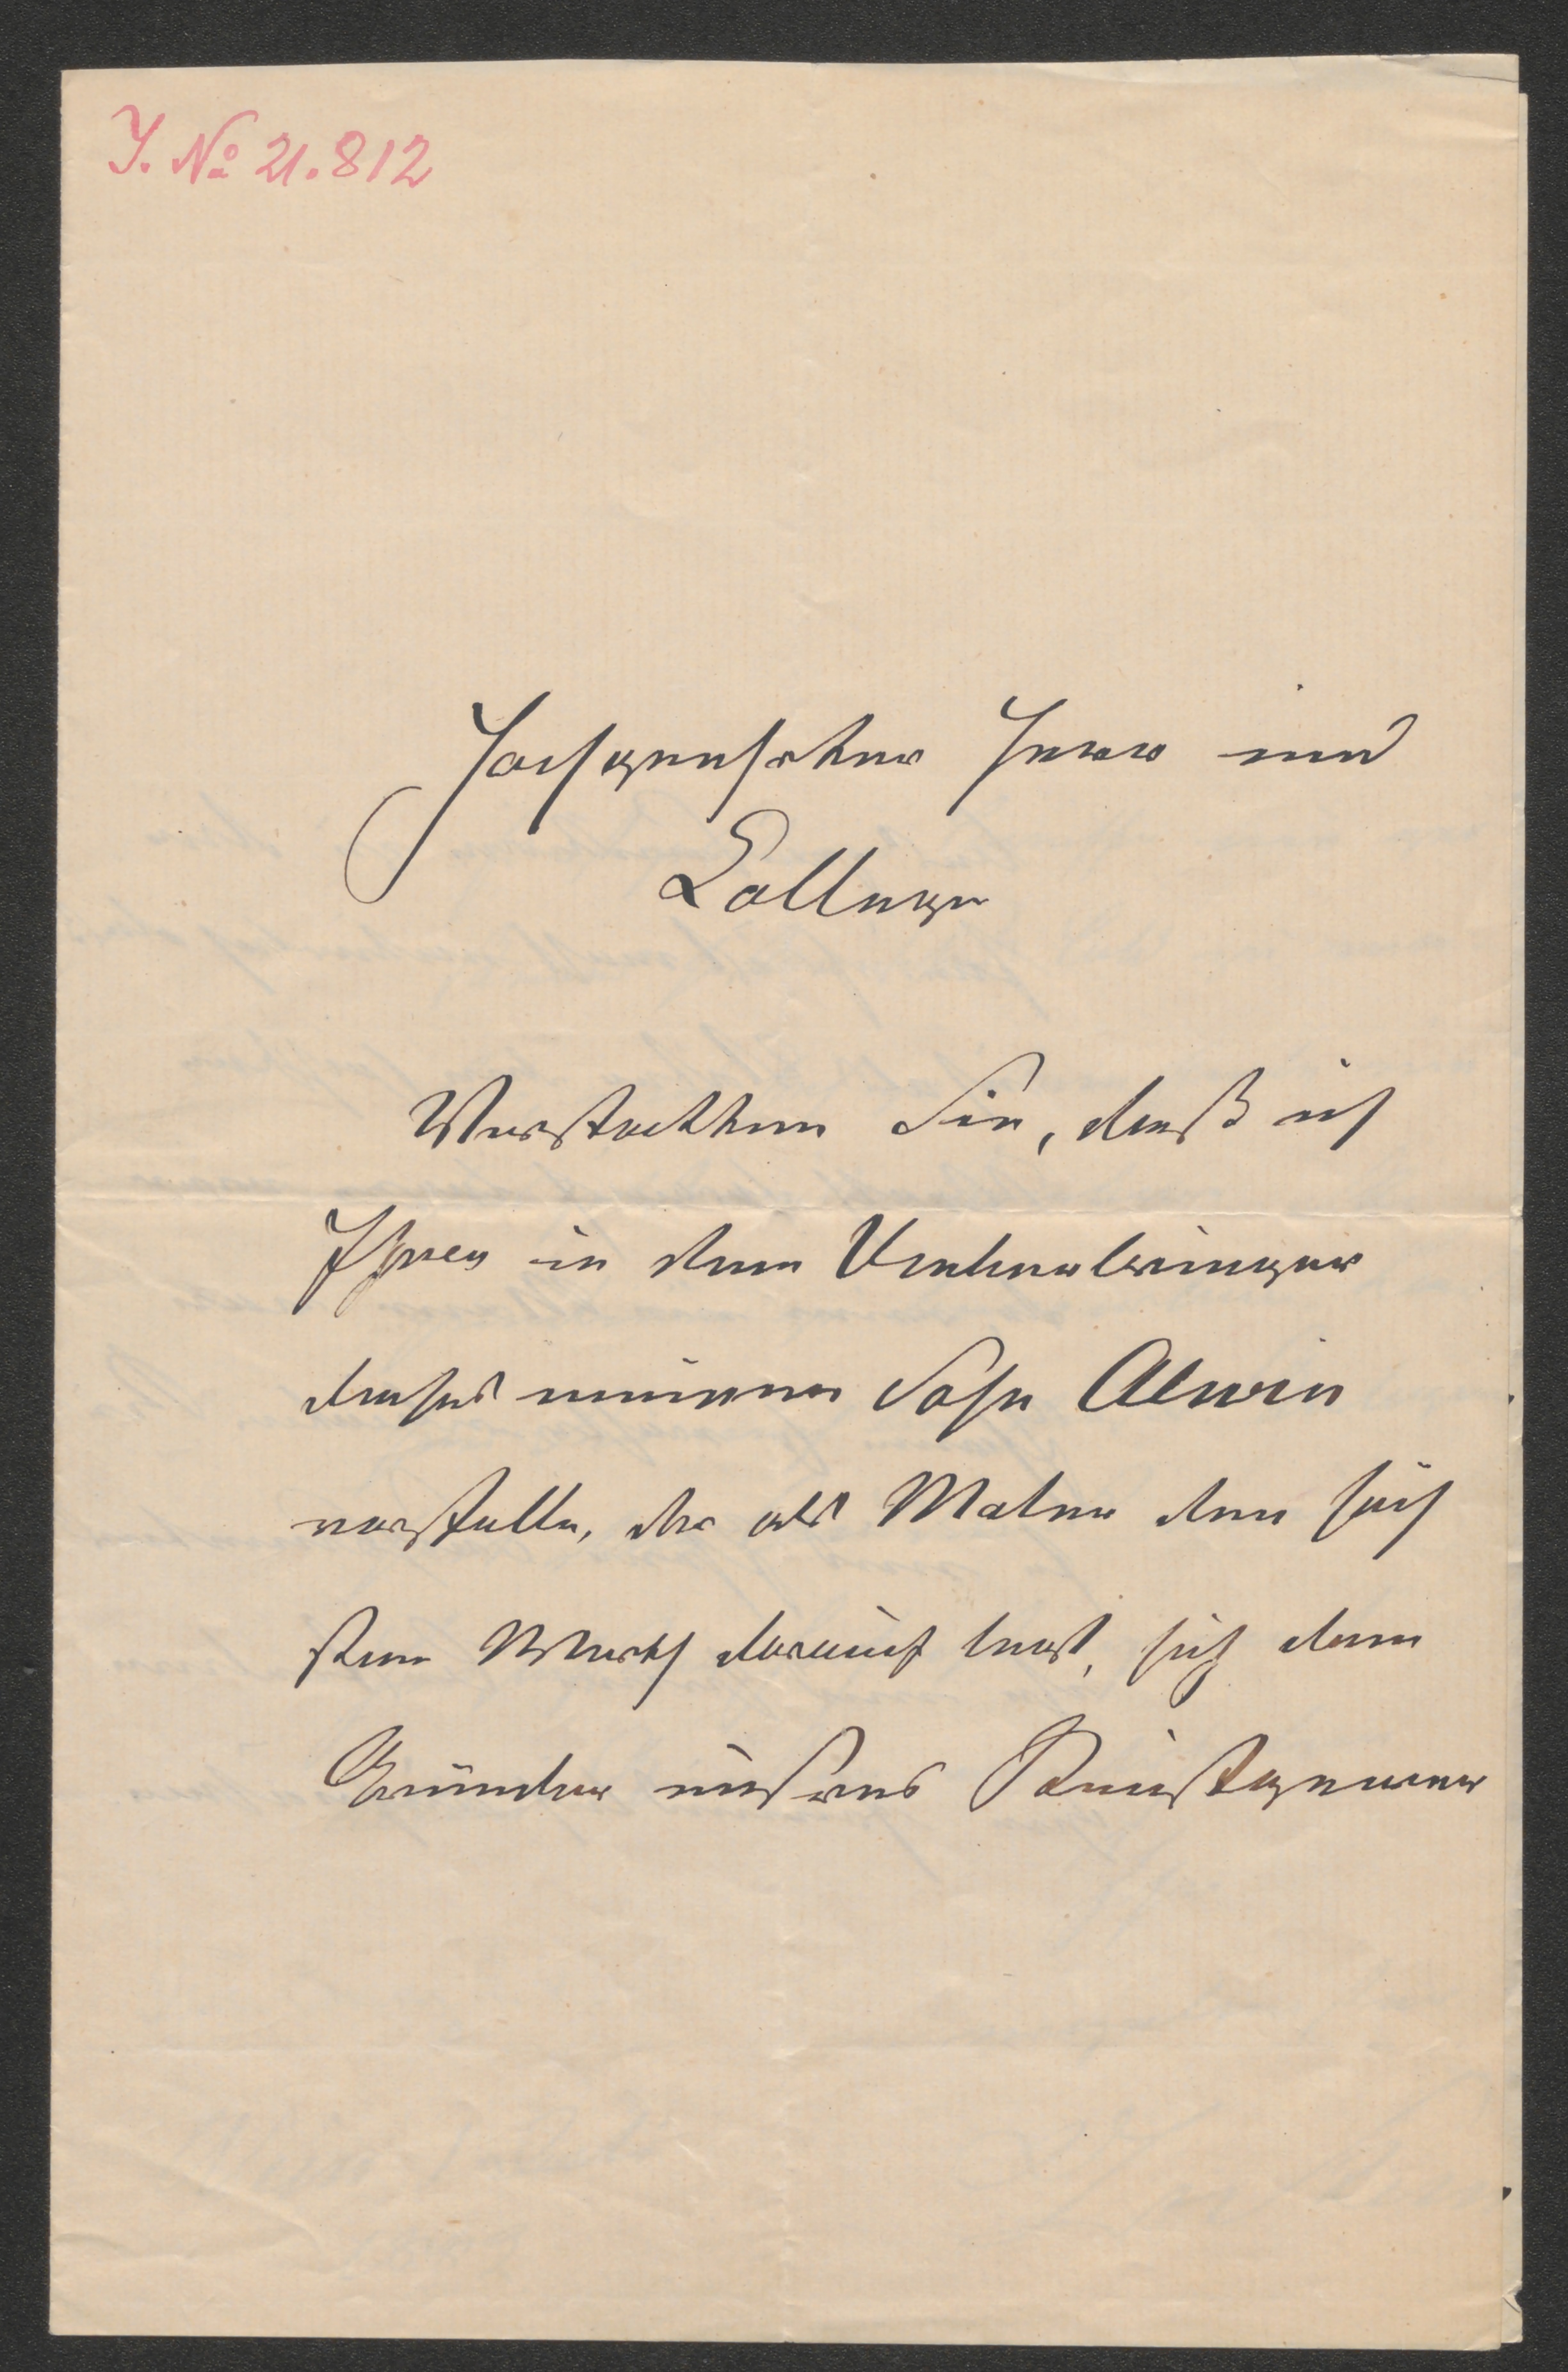 J. No 21.812
Hochgeehrter Herr und
College
Verstatten Sie, daß ich
Ihnen in dem Ueberbringer
dieses meinen Sohn Alwin
vorstelle, der als Maler den höch
sten Werth darauf legt, sich dem
Gründer unseres Kunstgewer